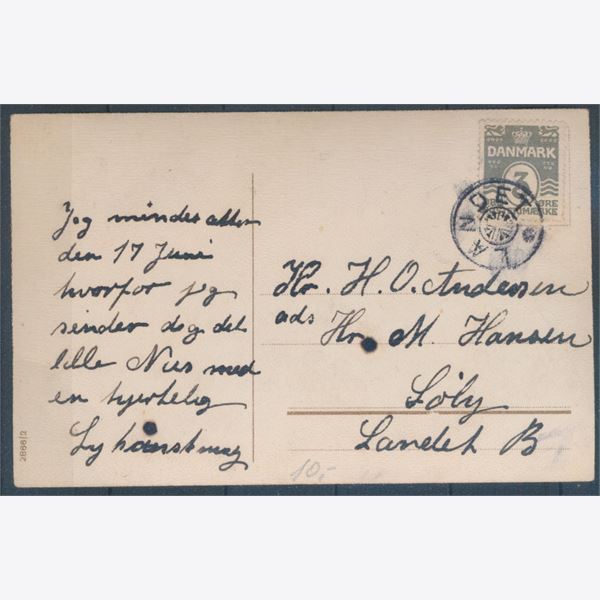 DANMARK
3
ØRE
LANDET
Jeg mindes atter
den 17 Juni
hvorfor jeg
sender dog det
lille Nus med
en hjertelig
Lykønskning
Hr. H. O. Andersen
ads Hr. M. Hansen
Söly
Landet B
10,-
2866/2